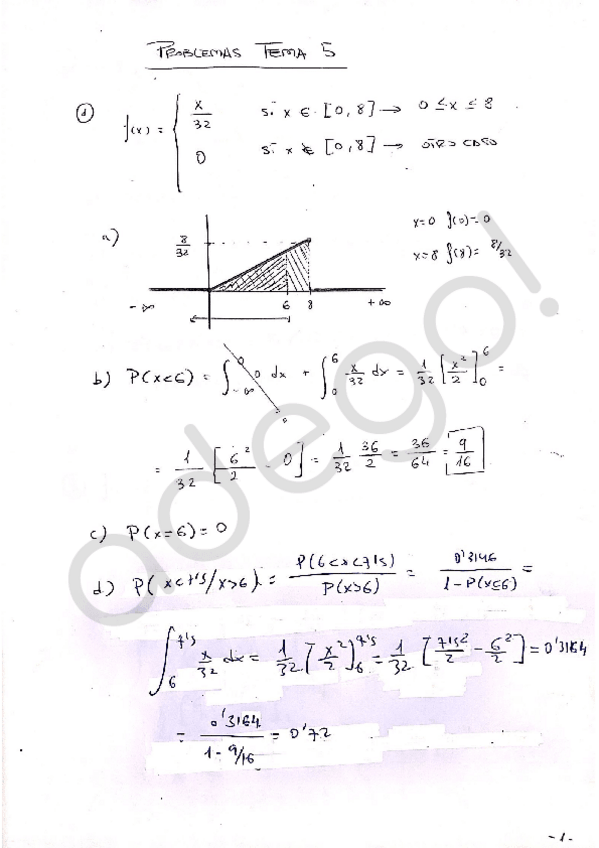 PROBLEMAS TEMA 5
① f(x) = { x/32 si x ∈ [0,8] → 0 ≤ x ≤ 8
0 si x ∉ [0,8] → otro caso
a) 8/32
x=0 f(0)=0
x=8 f(8)= 8/32
-∞ 6 8 +∞
b) P(x<6) = ∫_{-∞}^{0} 0 dx + ∫_{0}^{6} x/32 dx = 1/32 [x²/2]_{0}^{6} =
0
= 1/32 [6²/2 - 0] = 1/32 36/2 = 36/64 = 9/16
c) P(x=6)=0
d) P(x<7'5/x>6) = P(6<x<7'5)/P(x>6) = 0'3146/1-P(x≤6) =
∫_{6}^{7'5} x/32 dx = 1/32 [x²/2]_{6}^{7'5} = 1/32 [7'5²/2 - 6²/2] = 0'3164
= 0'3164/1-9/16 = 0'72
-1-
adego!